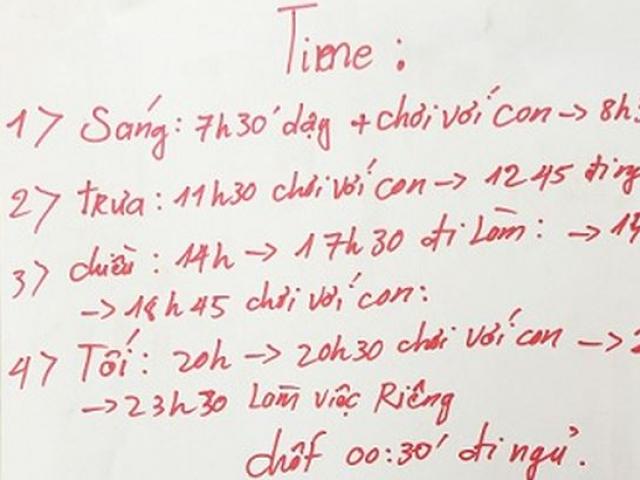 Time:
1> Sáng: 7h30' dậy + chơi với con → 8h
2> trưa: 11h30 chơi với con → 1245 đi
3> chiều: 14h → 17h30 đi Làm: →
→ 18h45 chơi với con:
4> Tối: 20h → 20h30 chơi với con →
→ 23h30 Làm việc Riêng
chốt 00:30' đi ngủ.